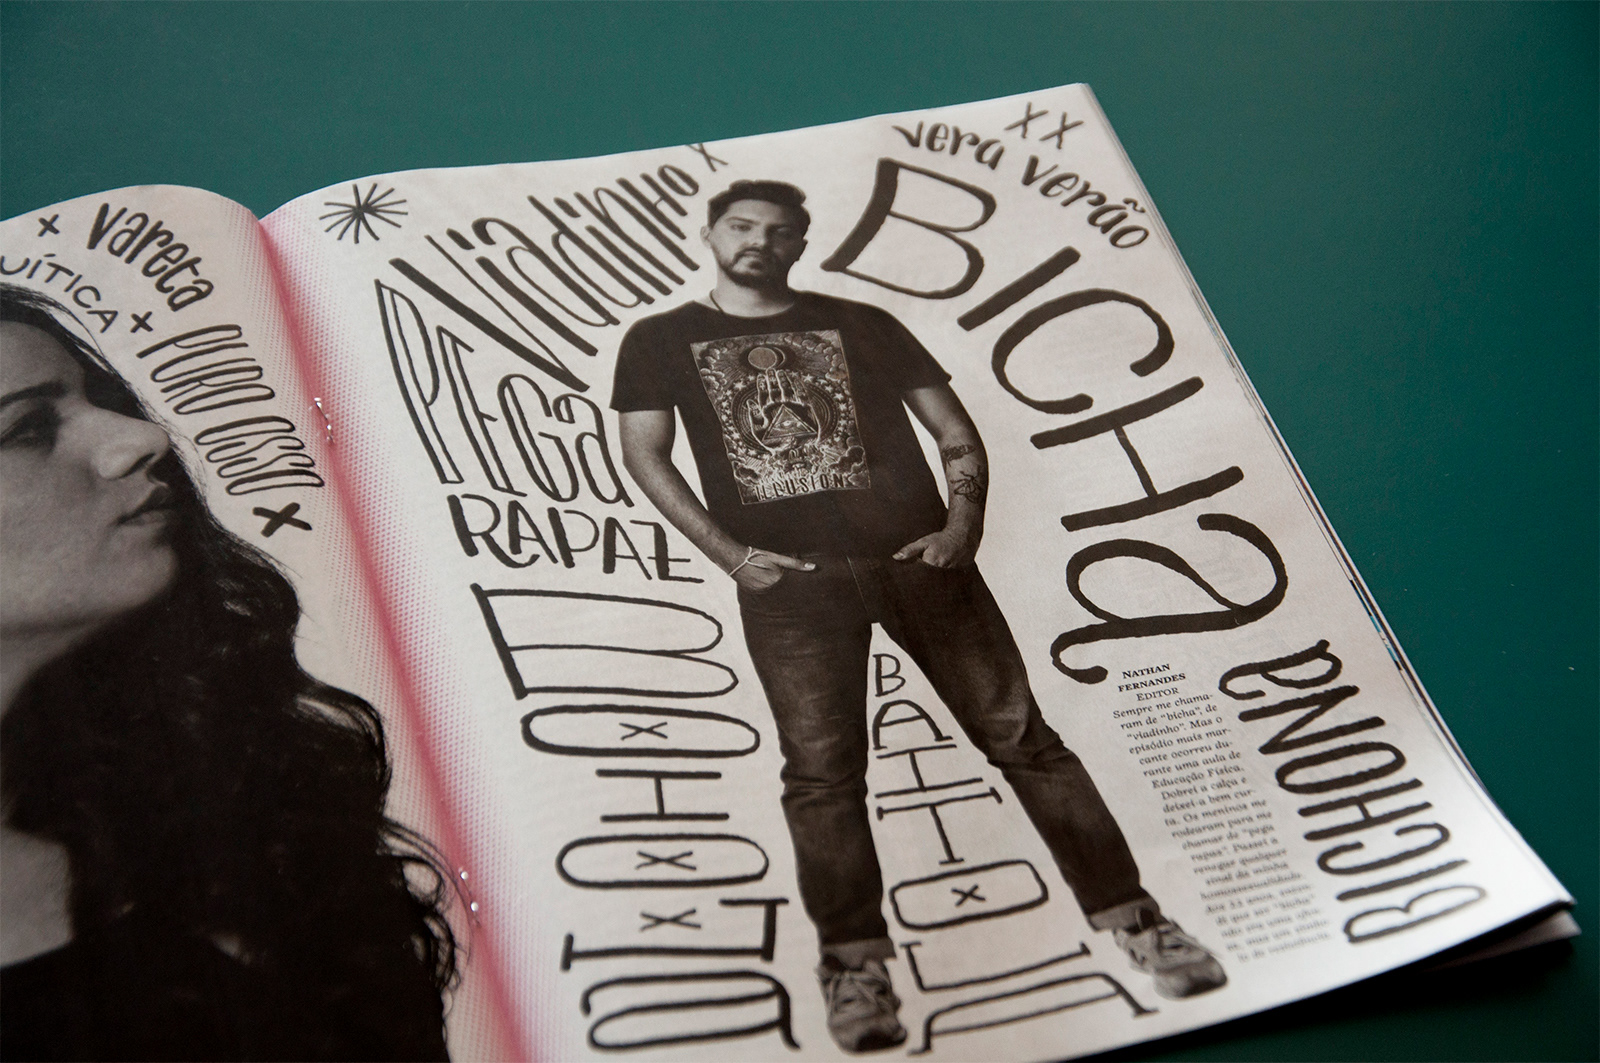 vareta
PURO OSSO
Viadinho
PEGa
RAPAZ
vera verão
BICHa
BICHONa
ILLUSION
NATHAN
FERNANDES
EDITOR
Sempre me chama-
ram de “bicha”, de
“viadinho”. Mas o
episódio mais mar-
cante ocorreu du-
rante uma aula de
Educação Física.
Dobrei a calça e
deixei-a bem cur-
ta. Os meninos me
rodearam para me
chamar de “pega
rapaz”. Passei a
renegar qualquer
sinal da minha
homossexualidade.